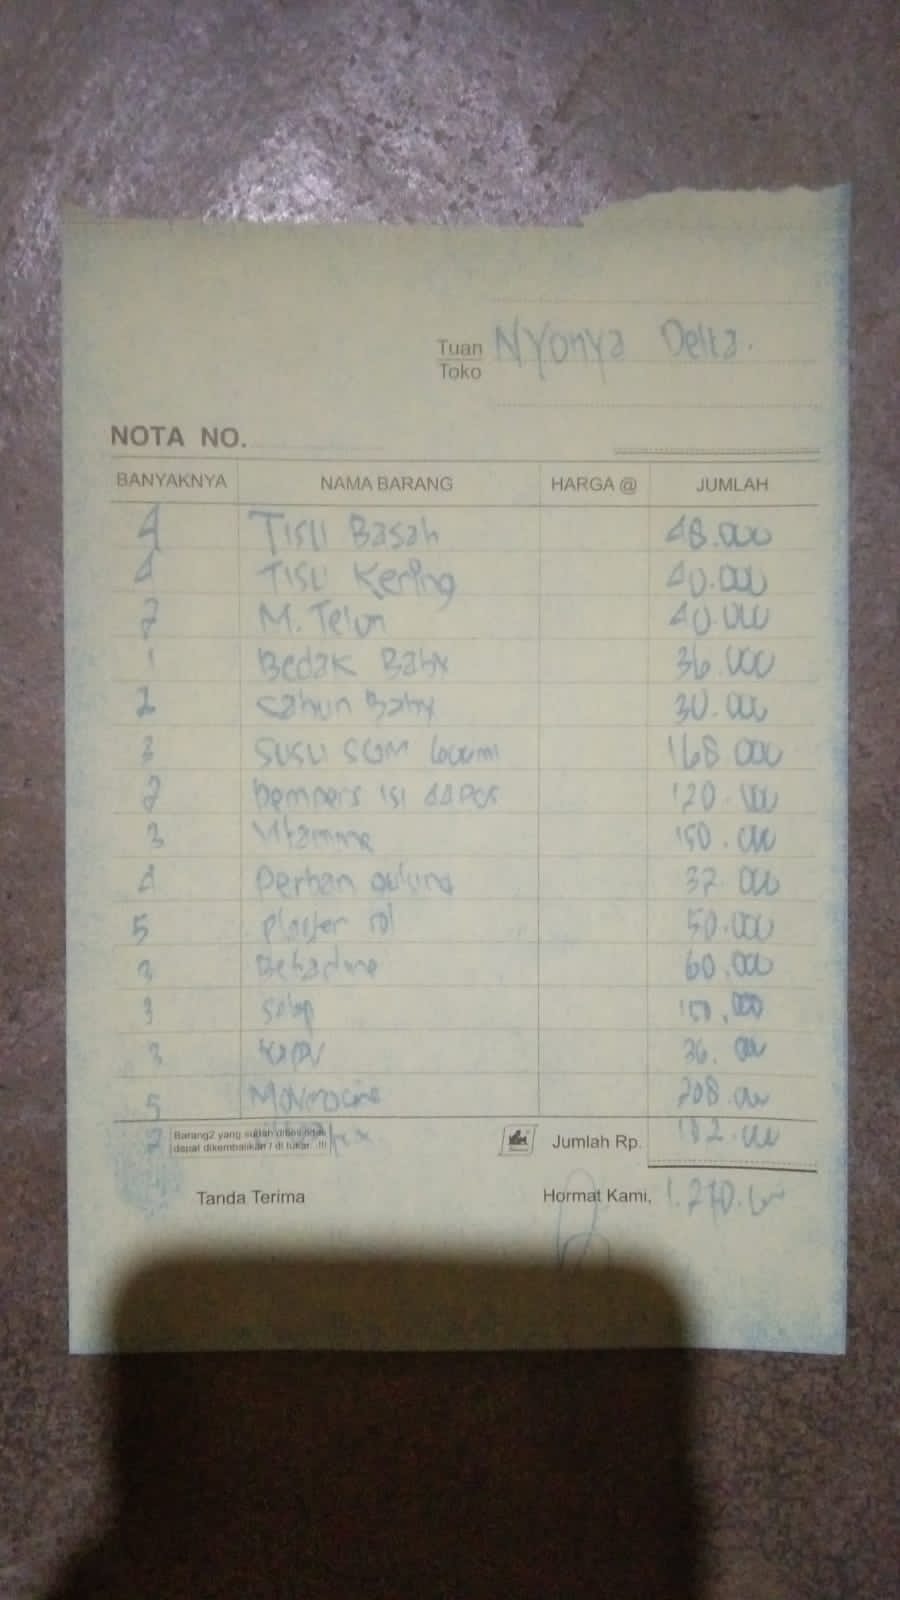 Tuan Nyonya Delta.
Toko
NOTA NO.
BANYAKNYA NAMA BARANG HARGA @ JUMLAH
4 Tisu Basah 48.000
4 Tisu Kering 40.000
2 M. Telon 40.000
1 Bedak Baby 36.000
2 Sabun Baby 30.000
3 SUSU SGM 600ml 168.000
2 pempers isi 44 pcs 120.000
3 Vitamine 150.000
4 perban gulung 32.000
5 plaster rol 50.000
3 Betadine 60.000
3 salep 150.000
3 36.000
5 208.000
2 102.000
Barang2 yang sudah dibeli tidak
dapat dikembalikan / di tukar...!!!
Jumlah Rp.
Tanda Terima Hormat Kami, 1.270.000